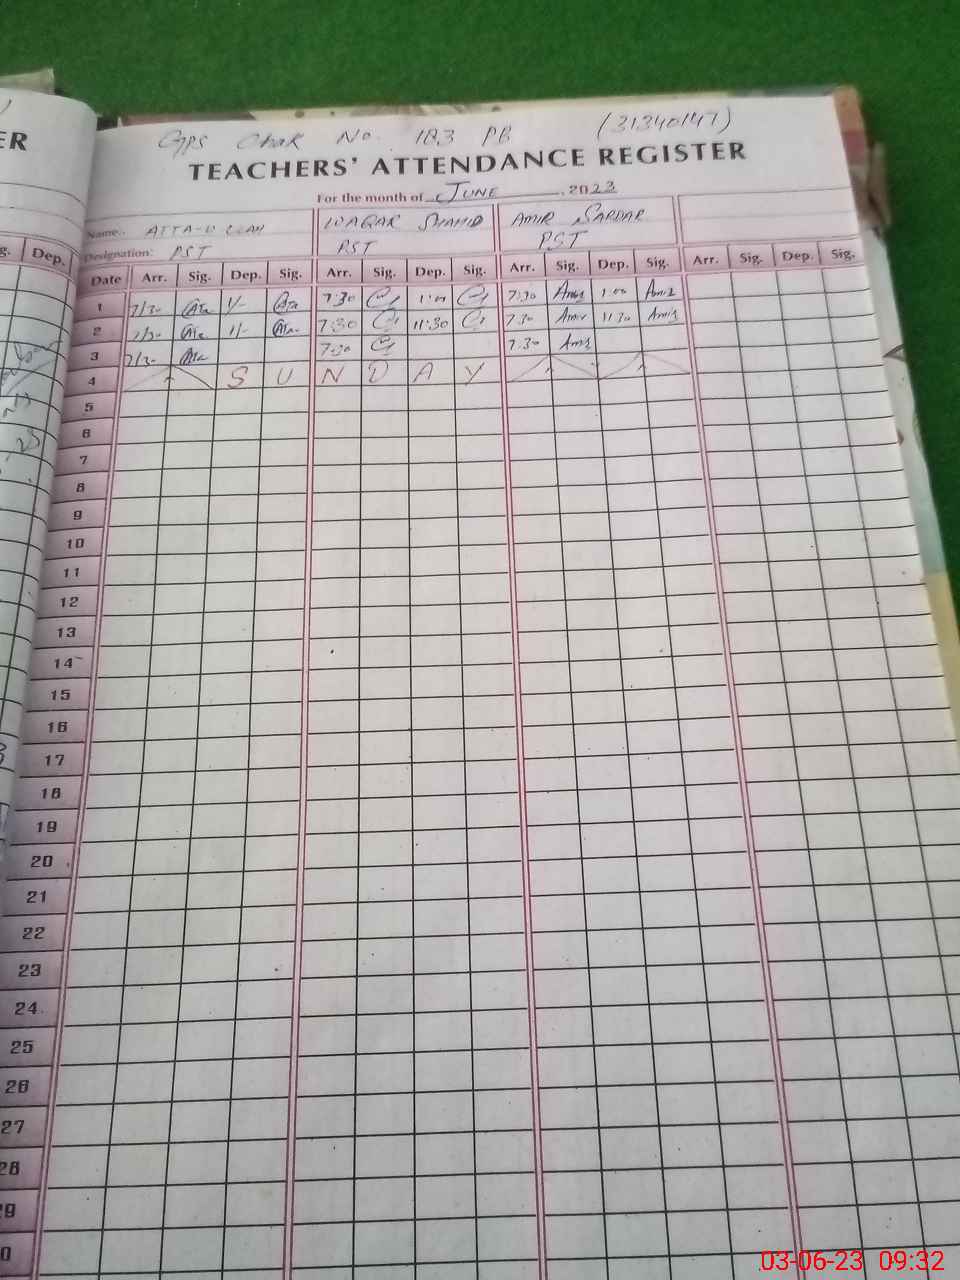 ER
Gps Chak No. 183 PB (31340147)
TEACHERS' ATTENDANCE REGISTER
For the month of JUNE, 2023
Name: ATTA-U LLAH WAQAR SHAHID AMIR SARDAR
Designation: PST PST PST
g. Dep. Date Arr. Sig. Dep. Sig. Arr. Sig. Dep. Sig. Arr. Sig. Dep. Sig. Arr. Sig. Dep. Sig.
1 7/30 Ata 1/- Ata 7:30 1:00 7:30 Amir 1:00 Amir
2 7/30 Ata 11/- Ata 7:30 11:30 7:30 Amir 11:30 Amir
3 7/30 Ata 7:30 7:30 Amir
4 S U N D A Y
5
6
7
8
9
10
11
12
13
14
15
16
17
18
19
20
21
22
23
24
25
26
27
28
29
0
03-06-23 09:32